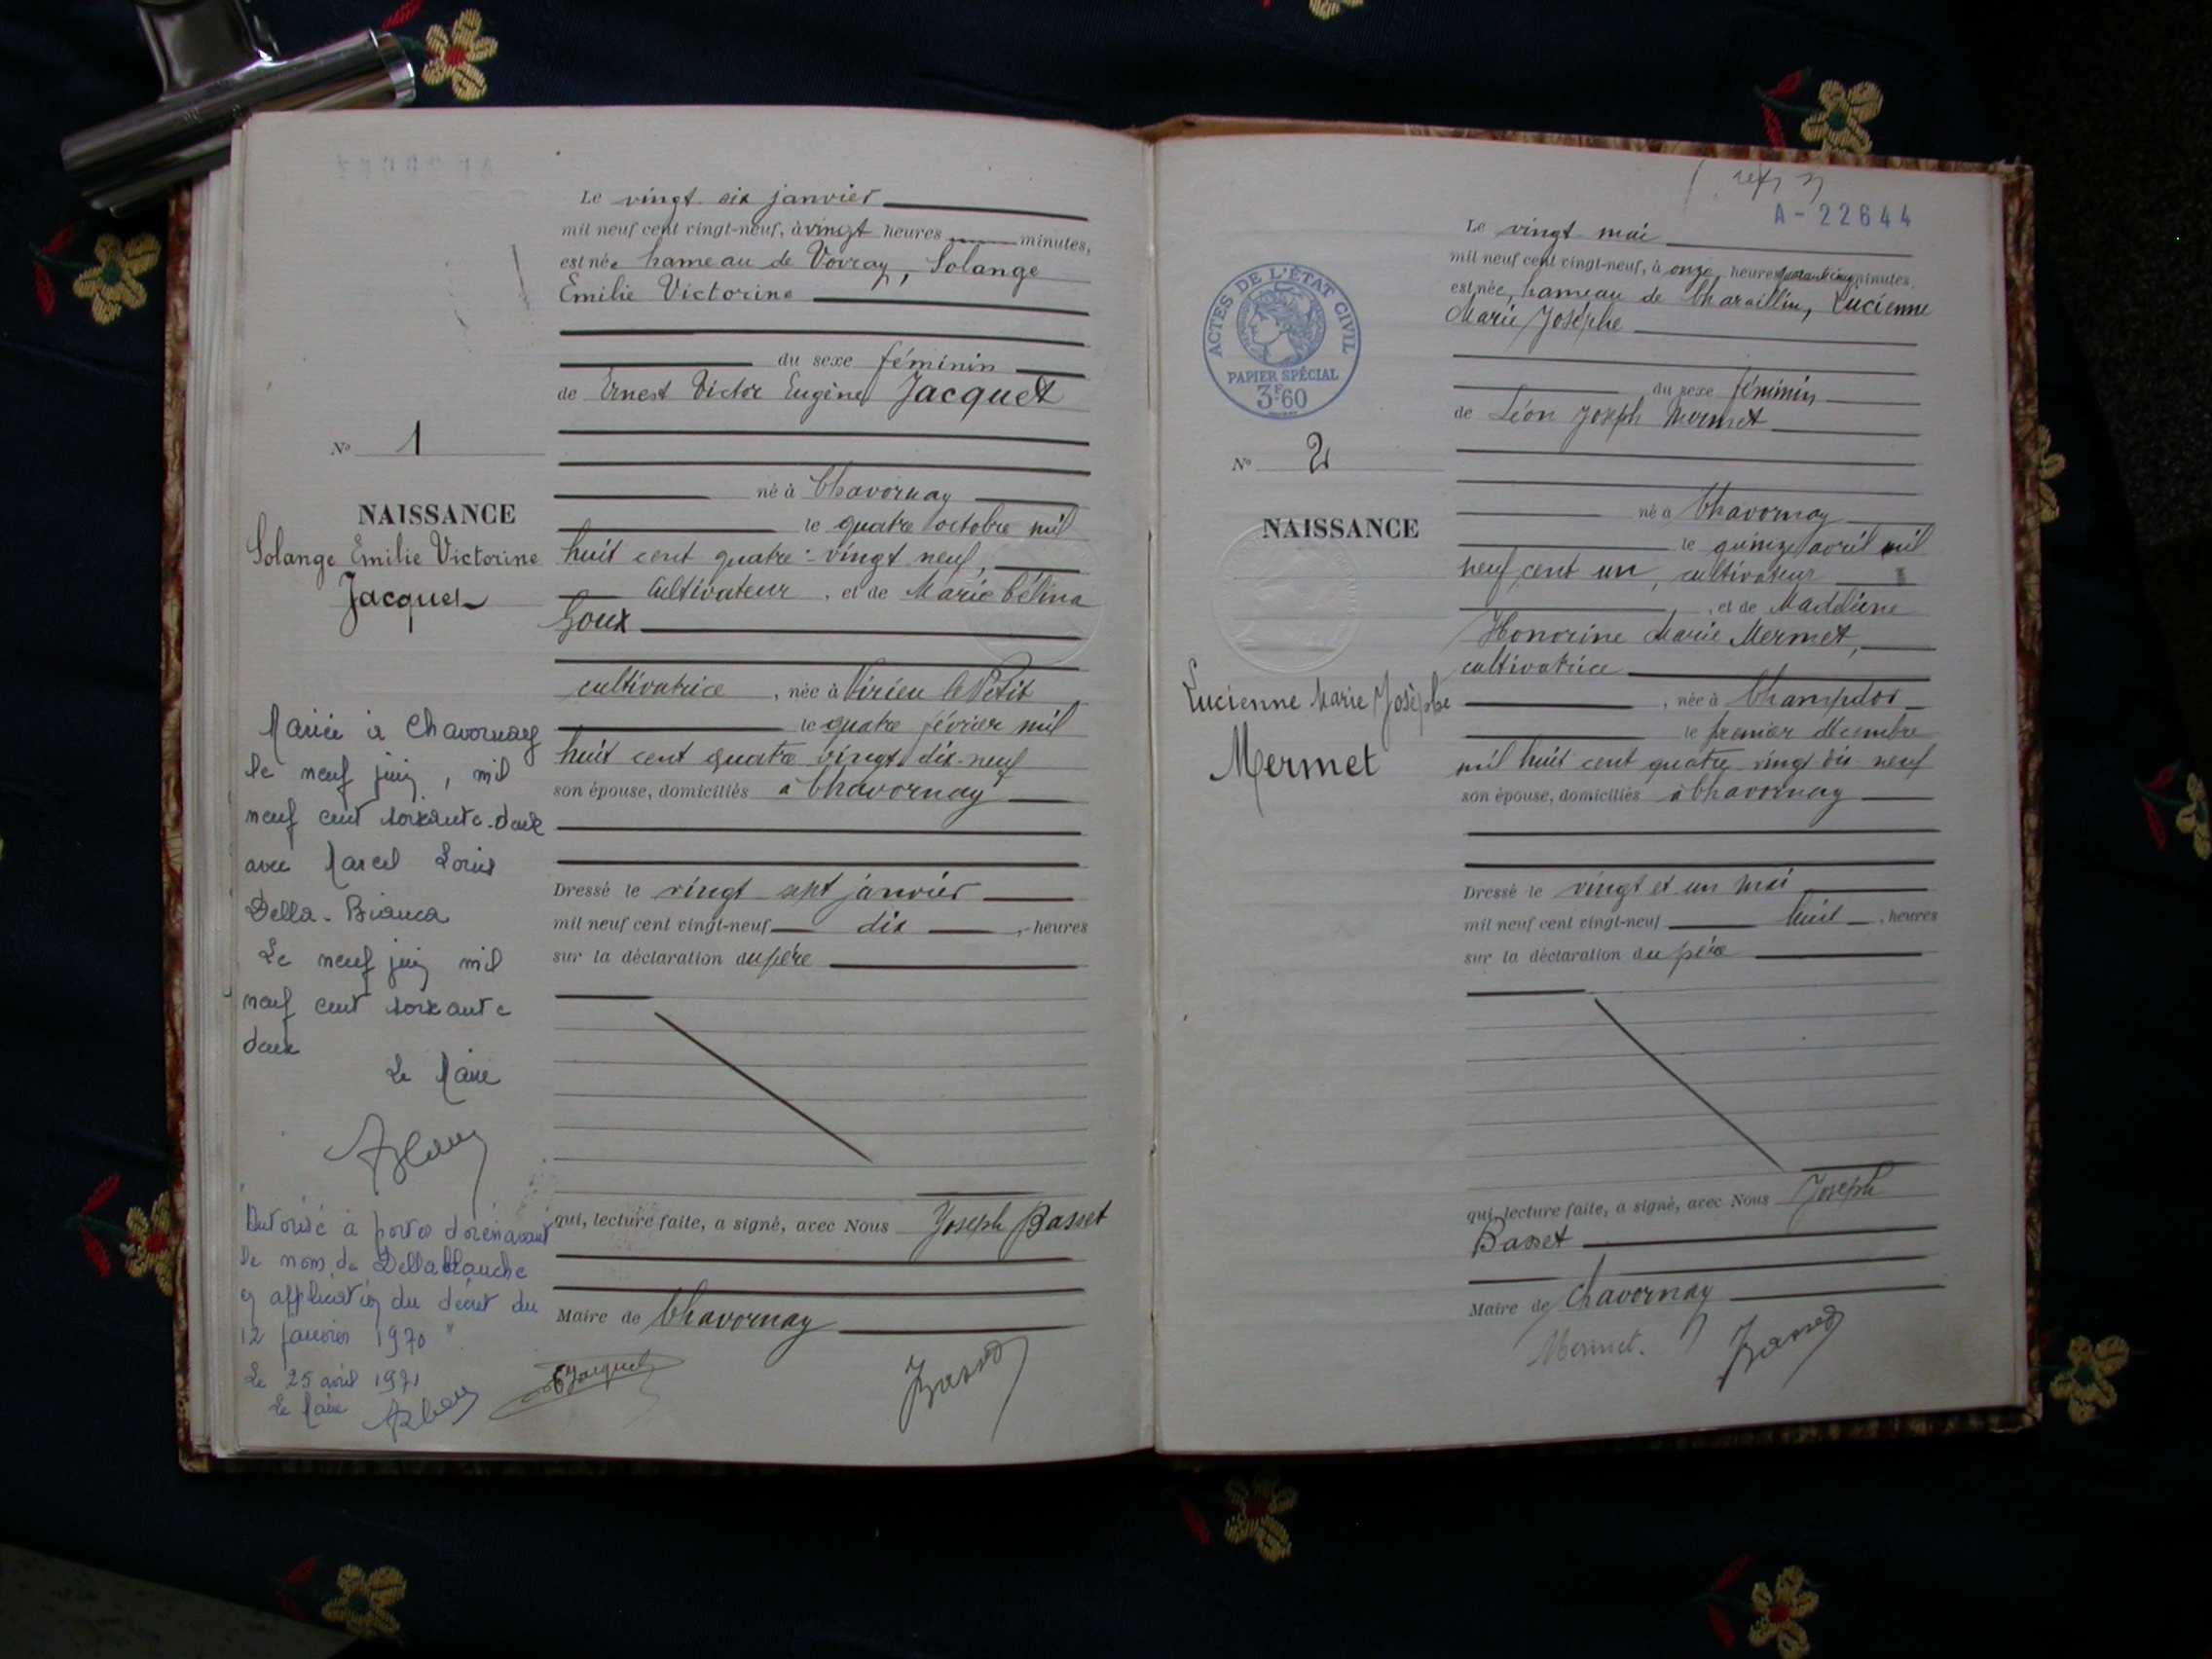 Le vingt six janvier
mil neuf cent vingt-neuf, à vingt heures minutes,
est née hameau de Vovray, Solange
Emilie Victorine
du sexe féminin
de Ernest Victor Eugène Jacquet
né à Chavornay
le quatre octobre mil
huit cent quatre-vingt neuf,
cultivateur, et de Marie Célina
Goux
cultivatrice, née à Virieu le Petit
le quatre février mil
huit cent quatre vingt dix-neuf
son épouse, domiciliés à Chavornay
Dressé le vingt sept janvier
mil neuf cent vingt-neuf dix, heures
sur la déclaration du père
qui, lecture faite, a signé, avec Nous Joseph Basset
Maire de Chavornay
EJacquet
Basset
No 1
NAISSANCE
Solange Emilie Victorine
Jacquet
Mariée à Chavornay
le neuf juin, mil
neuf cent soixante-deux
avec Marcel Louis
Della-Bianca
Le neuf juin mil
neuf cent soixante
deux
Le Maire
"Autorisé à porter dorénavant
le nom de Dellablanche
en application du décret du
12 janvier 1970"
Le 25 avril 1971
Le Maire
A-22644
ACTES DE L'ÉTAT CIVIL
PAPIER SPÉCIAL
3F60
Le vingt mai
mil neuf cent vingt-neuf, à onze heures quarante cinq minutes,
est née, hameau de Charaillin, Lucienne
Marie Josèphe
du sexe féminin
de Léon Joseph Mermet
né à Chavornay
le quinze avril mil
neuf cent un, cultivateur
, et de Madeleine
Honorine Marie Mermet,
cultivatrice
, née à Champdor
le premier décembre
mil huit cent quatre vingt dix neuf
son épouse, domiciliés à Chavornay
Dressé le vingt et un mai
mil neuf cent vingt-neuf huit, heures
sur la déclaration du père
qui, lecture faite, a signé, avec Nous Joseph
Basset
Maire de Chavornay
Mermet.
Basset
No 2
NAISSANCE
Lucienne Marie Josèphe
Mermet